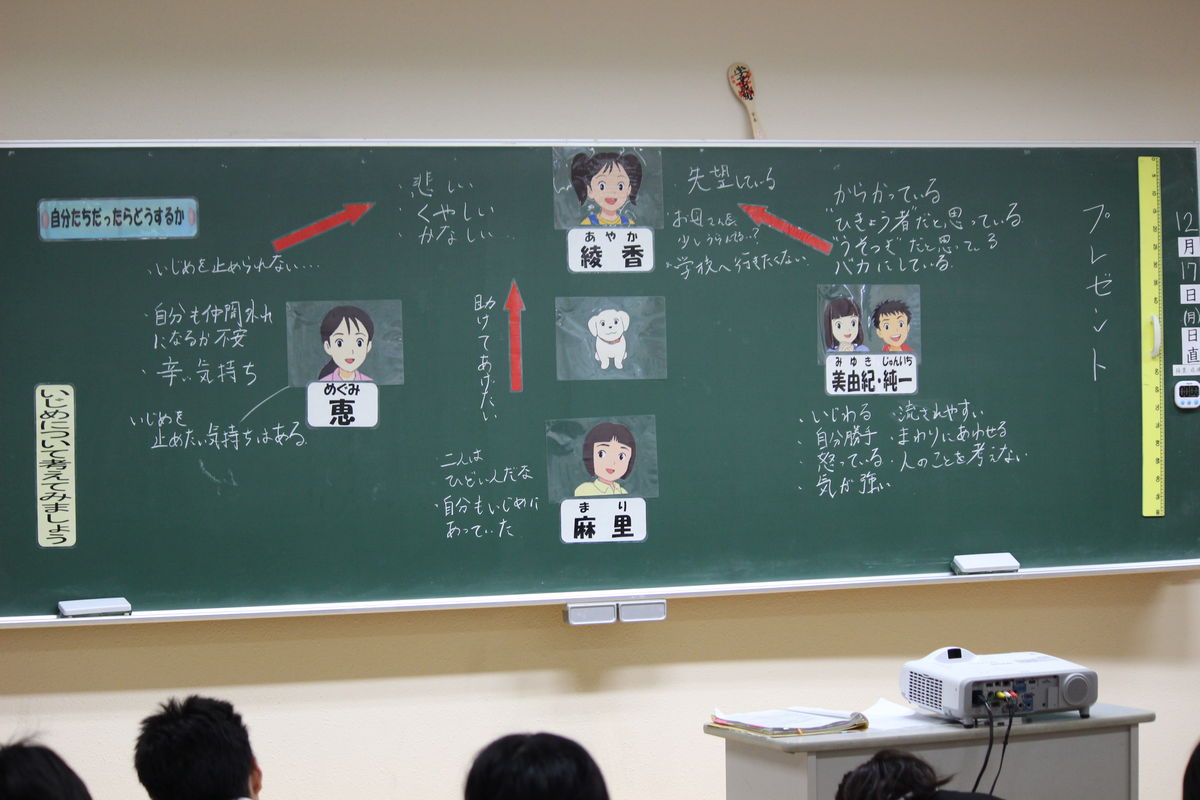 12
月
17
日
(月)
日
直
プレゼント
自分たちだったらどうするか
いじめについて考えてみましょう
・悲しい
・くやしい
・かなしい…
あやか
綾香
・失望している
・お母さん
少しうらんでる…?
学校へ行きたくない
からかっている
ひきょう者だと思っている
うそつきだと思っている
バカにしている
みゆき じゅんいち
美由紀・純一
・いじわる ・流されやすい
・自分勝手 ・まわりにあわせる
・怒っている ・人のことを考えない
・気が強い
・いじめを止められない…
・自分も仲間外れ
になるか不安
・辛い気持ち
めぐみ
恵
いじめを
止めたい気持ちはある
助けてあげたい
二人は
ひどいんだな
自分もいじめに
あっていた
まり
麻里